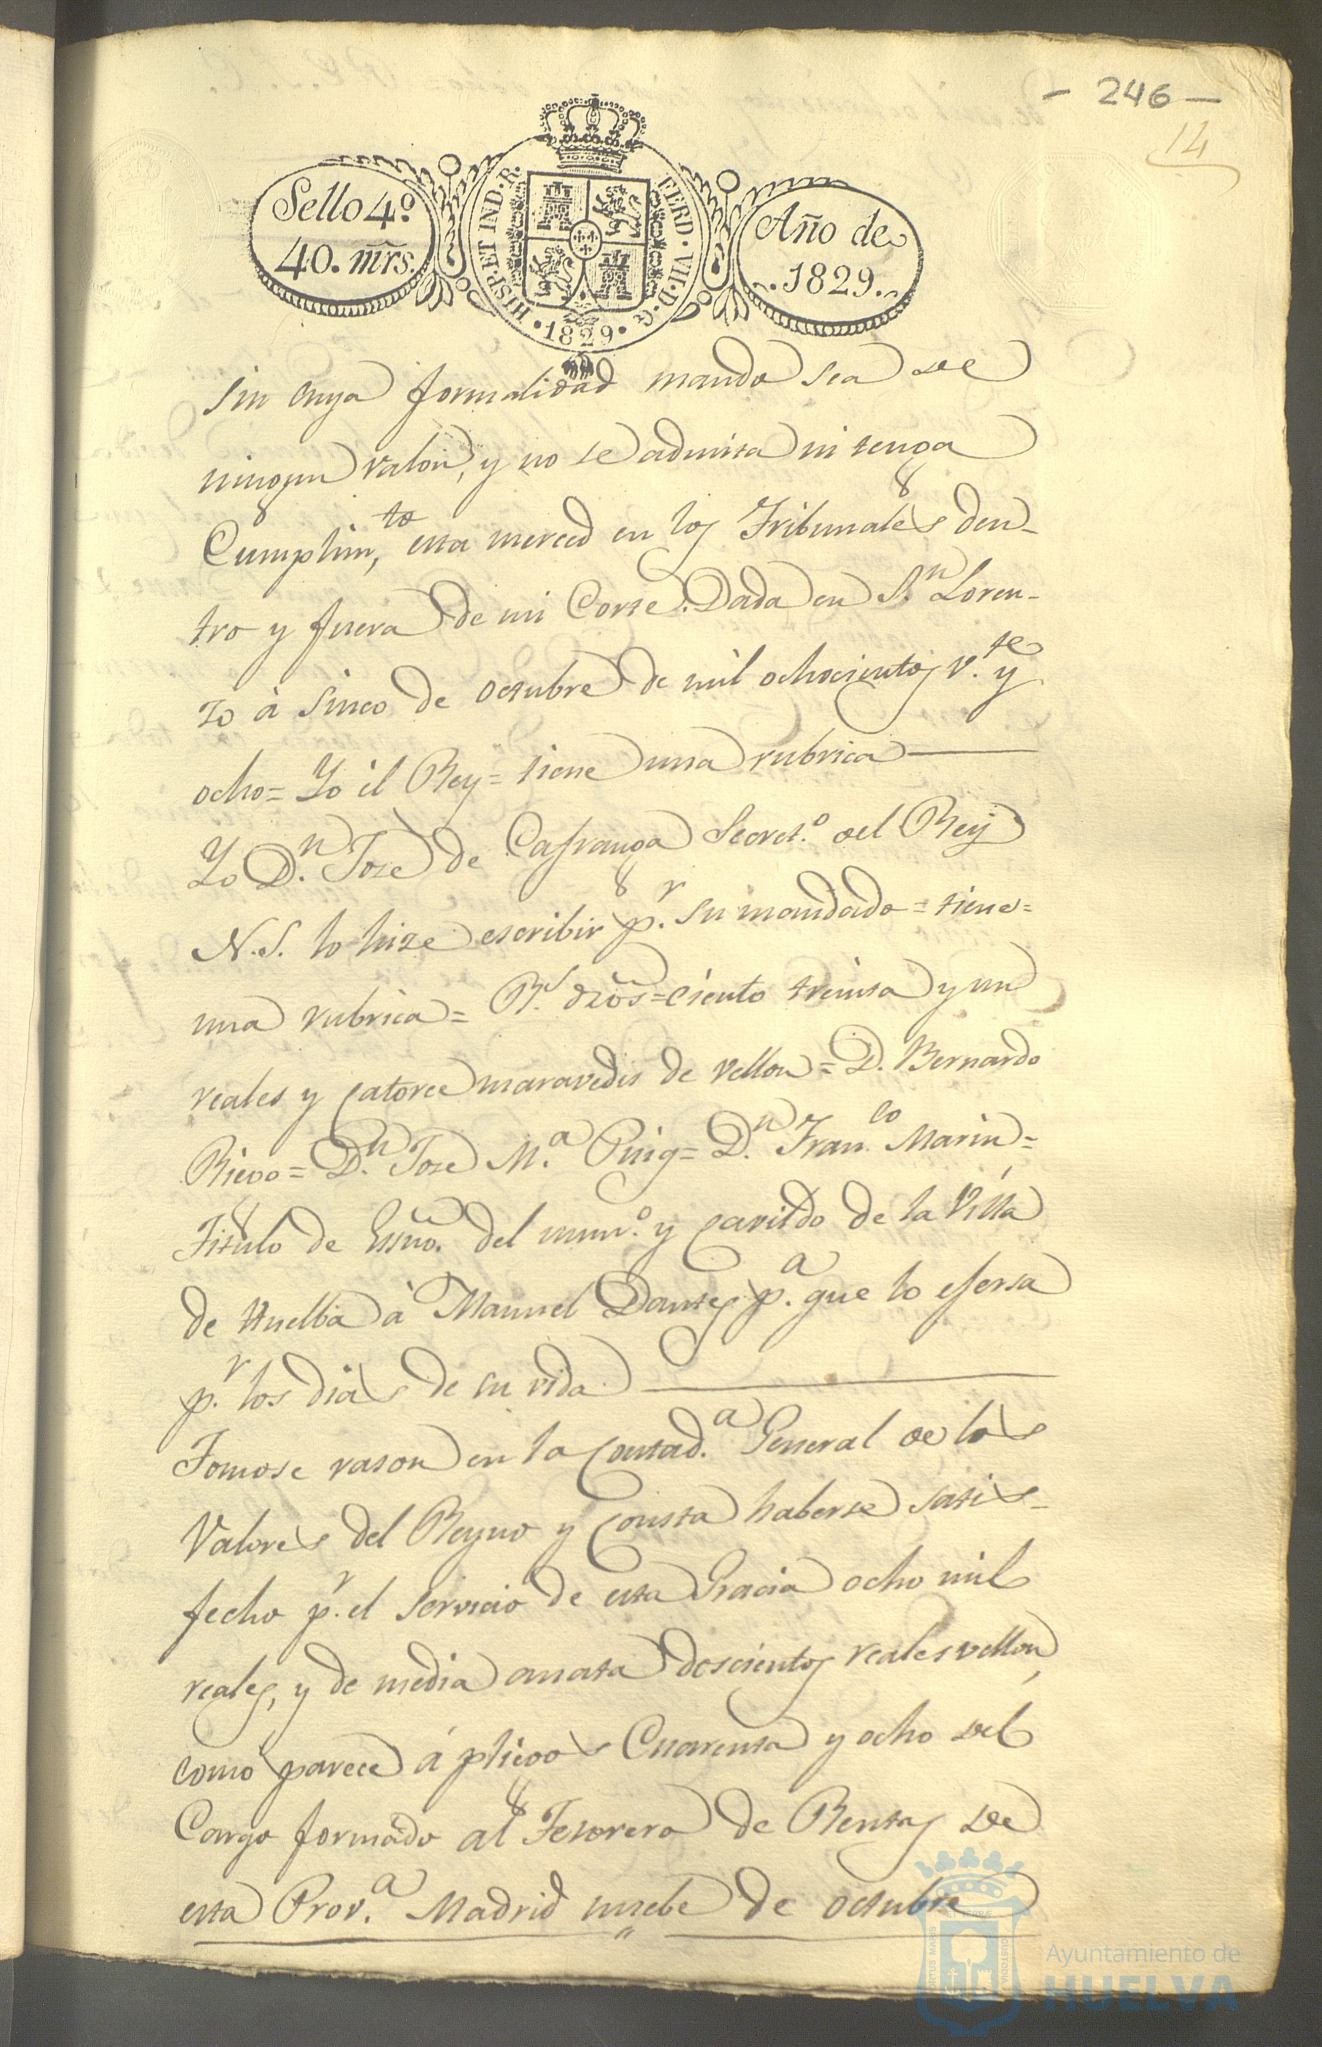 - 246 -
14
Sello 4º
40. mrs.
HISP. ET IND. R.
FERD. VII. D. G.
· 1829 ·
Año de
. 1829 .
sin cuya formalidad mando sea de
ningun valor, y no se admita ni tenga
Cumplim,to esta merced en los Tribunales den-
tro y fuera de mi Corte. Dada en S.n Loren-
zo á sinco de octubre de mil ochocientos v.te y
ocho= Yo el Rey= tiene una rubrica
Yo D.n Jose de Cafranga Secret.º del Rey
N. S. lo hize escribir p.r su mandado= tiene=
una rubrica= R.s dros= ciento treinta y un
reales y catorce maravedis de vellon= D. Bernardo
Riego= D.n Jose M.a Puig= D.n Fran.co Marin=
Titulo de Essno. del num.º y cavildo de la Villa
de Huelba á Manuel Dantes p.a que lo ejersa
p.r los dias de su vida
Tomose rason en la Contad.a General de los
Valores del Reyno y consta haberse satis-
fecho p.r el servicio de esta Gracia ocho mil
reales, y de media anata doscientos reales vellon,
como parece á pliegos Cuarenta y ocho del
Cargo formado al Tesorero de Rentas de
esta Prov.a Madrid nuebe de octubre
Ayuntamiento de
HUELVA